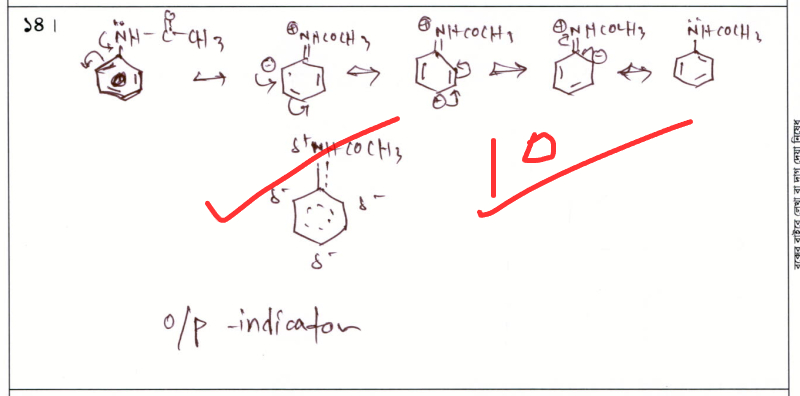 ১৪।
NH-C-CH3 ↔ ⊕NHCOCH3 ↔ ⊕NHCOCH3 ↔ ⊕NHCOCH3 ↔ NHCOCH3
O
⊖ ⊖ ⊖
δ+ NHCOCH3
δ- δ-
δ-
10
o/p -indicator
রক্সের বাইরে লেখা বা দাগ দেয়া নিষেধ